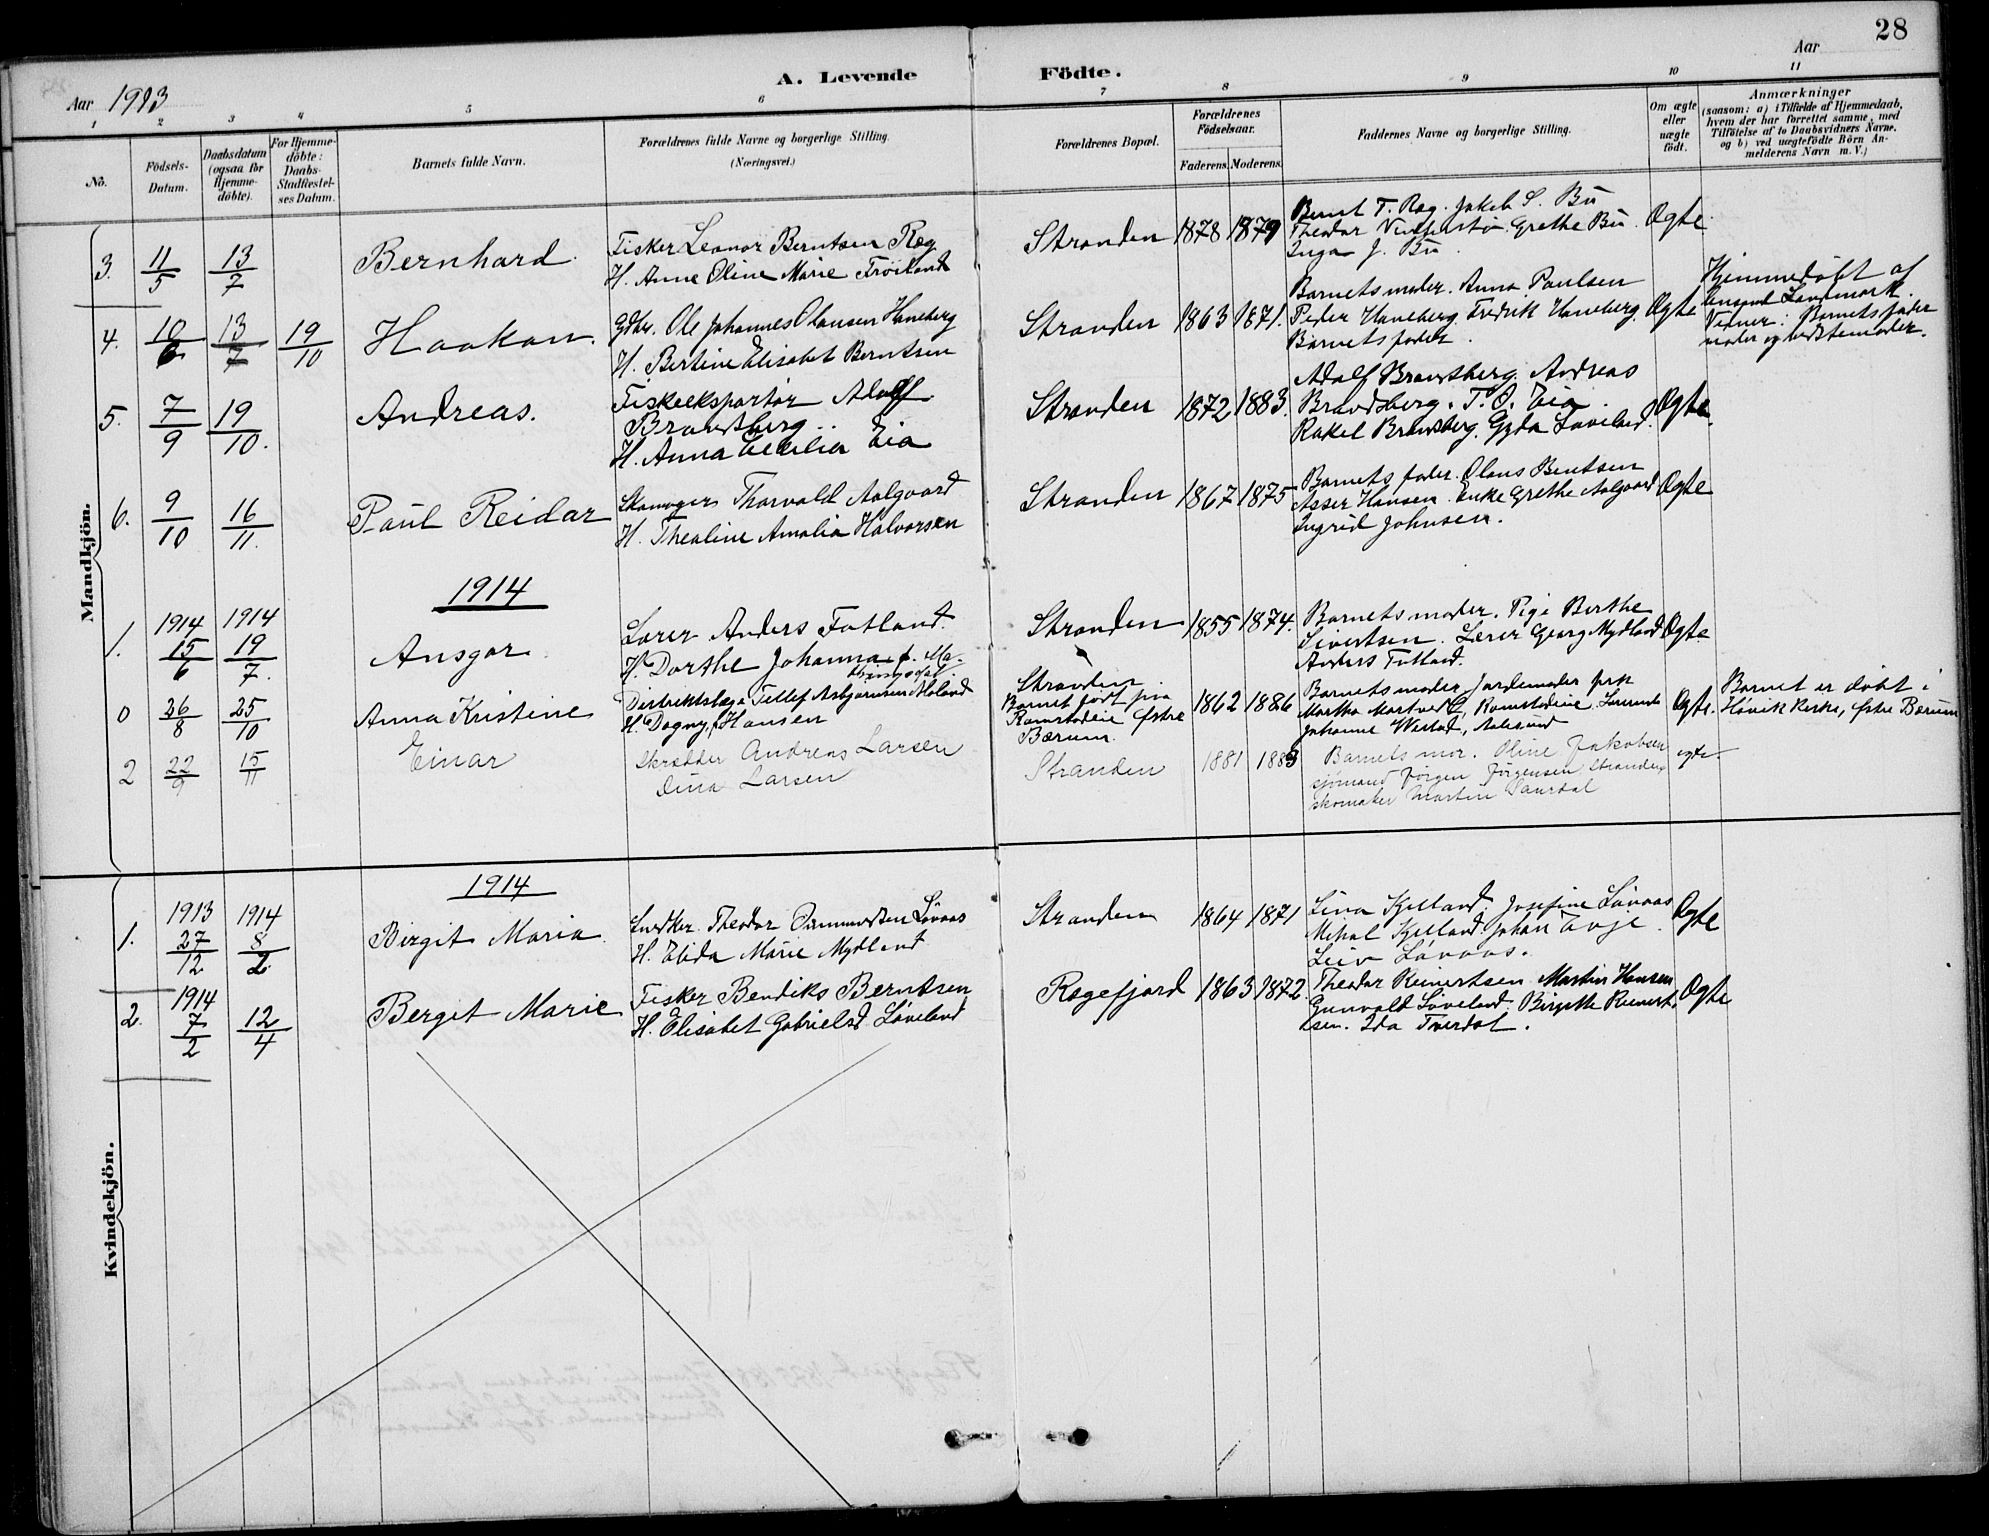 28
A. Levende Födte.
Aar 1913
Aar
1 2 3 4 5 6 7 8 9 10 11
No.
Födsels-Datum.
Daabsdatum (ogsaa for Hjemme-döbte).
For Hjemme-döbte: Daabs-Stadfæstel-ses Datum.
Barnets fulde Navn.
Forældrenes fulde Navne og borgerlige Stilling. (Næringsvei.)
Forældrenes Bopæl.
Forældrenes Födselsaar.
Faderens. Moderens.
Faddernes Navne og borgerlige Stilling.
Om ægte eller uægte födt.
Anmærkninger
(saasom: a) i Tilfælde af Hjemmedaab, hvem der har forrettet samme, med Tilföielse af to Daabsvidners Navne. og b) ved uægtefödte Börn An-melderens Navn m. V.)
Mandkjön.
3. 11/5 13/7 Bernhard.
Fisker Leonor Berntsen Ræg
H. Anne Oline Marie Fröiland
Stranden 1878 1879
Bernt T. Ræg. Jakob S. Bu
Theodor Grethe Bu.
Inga J. Bu.
Ægte.
4. 10/6 13/7 19/10 Haakon.
Gdbr. Ole Johannes Olausen Haneberg
H. Bertine Elisabet Berntsen
Stranden 1863 1871.
Barnets moder. Anna Paulsen
Peder Haneberg. Fredrik Haneberg.
Barnets fader.
Ægte
Hjemmedöbt af
Landmark.
Vidner: Barnets fader
moder og bedstemoder.
5. 7/9 19/10. Andreas.
Fiskeeksportör Adolf
Brandsberg..
H. Anna Cecilia Eia
Stranden 1872 1883.
Adolf Brandsberg. Andreas
Brandsberg. T. O. Eia.
Rakel Brandsberg. Gyda Løveland.
Ægte.
6. 9/10 16/11. Paul Reidar
Skomager Thorvald Aalgaard
H. Thealine Amalia Halvorsen
Stranden 1867 1875
Barnets fader. Olaus Bentsen
Asser Hansen. Enke Grethe Aalgaard
Ingrid Johnsen.
Ægte
1914
1. 1914 15/6 1914 19/7. Ansgar.
Lærer Anders Fotland.
H. Dorthe Johanna f. Ma-
Stranden 1855 1874.
Barnets moder. Pige Berthe
Sivertsen. Lærer Georg Mydland
Anders Fotland.
Ægte.
0 26/8 25/10 Anna Kristine
Distriktslæge Tellef Asbjørnsen Aaland
H. Dagny f. Hansen
Stranden
Barnet født paa
Ramstadeie Østre
Bærum.
1862 1886
Barnets moder, Jordemoder frk
Martha Ramstadeie.
Johanne Westad, Aalesund
Ægte.
Barnet er døbt i
Høvik Kirke, Østre Bærum
2 22/9 15/11 Einar
Skrædder Andreas Larsen
Dina Larsen
Stranden 1881 1883
Barnets mor. Oline Jakobsen
sjømand Jørgen Jørgensen Stranden
skomaker Martin Saurdal
egte.
Kvindekjön.
1914
1. 1913 27/12 1914 8/2. Birgit Maria.
Snedker. Theodor Osmundsen Løvaas
H. Elida Marie Mydland
Stranden 1864 1871
Lina Kjelland. Josefine Løvaas
Mikal Kjelland. Johan Tvoje.
Leiv Løvaas.
Ægte
2. 1914 7/2 12/4 Bergit Marie
Fisker Bendiks Berntsen
H. Elisabet Gabrielsd. Løveland
Rægefjord 1863 1872.
Theodor Reinertsen Martin Hansen
Gunvald Løveland. Birgitte Reinert-
sen. Ida Tverdal.
Ægte